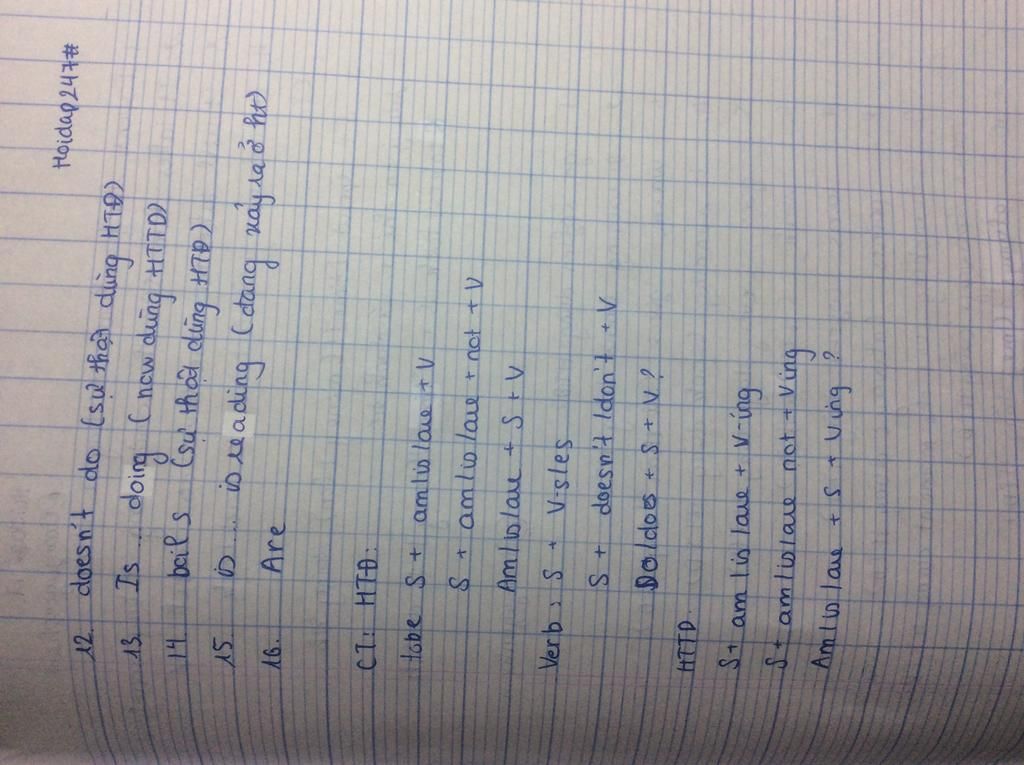 Hoidap247#
12. doesn't do (sự thật dùng HTĐ)
13. Is ... doing (now dùng HTTD)
14 boils (sự thật dùng HTĐ)
15 is ... is reading (đang xảy ra ở ht)
16. Are
CT: HTĐ:
tobe S + am/is/are + V
S + am/is/are + not + V
Am/is/are + S + V
Verb: S + V-s/es
S + doesn't/don't + V
Do/does + S + V?
HTTD.
S+ am/is/are + V-ing
S+ am/is/are not + Ving
Am/is/are + S + Ving ?